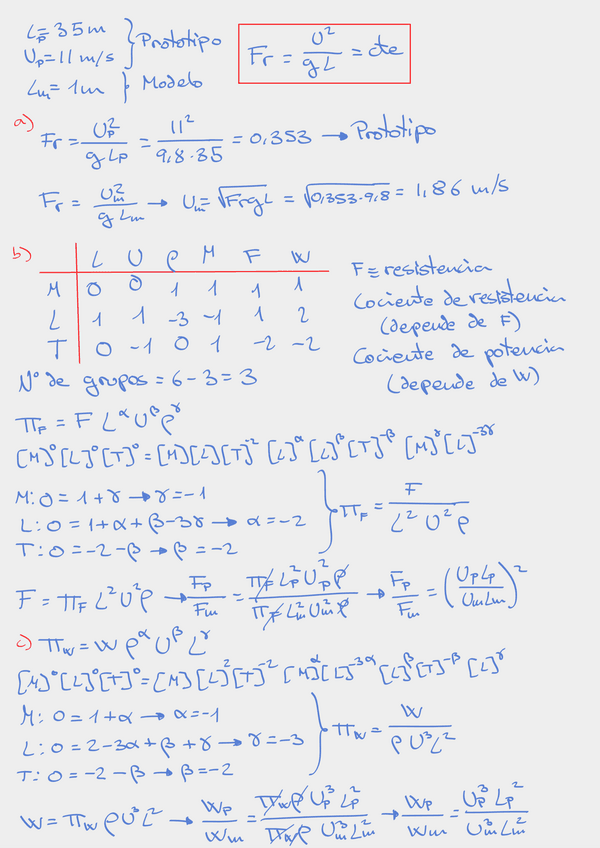 Lp=35m } Prototipo
Up=11 m/s
Lm=1m } Modelo
Fr = U²/(gL) = cte
a) Fr = Up²/(g Lp) = 11²/(9,8·35) = 0,353 → Prototipo
Fr = Um²/(g Lm) → Um = √(FrgL) = √(0,353·9,8) = 1,86 m/s
b) L U ρ M F W
M 0 0 1 1 1 1
L 1 1 -3 -1 1 2
T 0 -1 0 1 -2 -2
F ≡ resistencia
Cociente de resistencia
(depende de F)
Cociente de potencia
(depende de W)
Nº de grupos = 6-3 = 3
π_F = F L^α U^β ρ^γ
[M]⁰[L]⁰[T]⁰ = [M][L][T]⁻² [L]^α [L]^β [T]^-β [M]^γ [L]^-3γ
M: 0 = 1+γ → γ=-1
L: 0 = 1+α+β-3γ → α=-2
T: 0 = -2-β → β=-2
} π_F = F/(L² U² ρ)
F = π_F L² U² ρ → Fp/Fm = (π_F Lp² Up² ρ)/(π_F Lm² Um² ρ) → Fp/Fm = (Up Lp/Um Lm)²
c) π_W = W ρ^α U^β L^γ
[M]⁰[L]⁰[T]⁰ = [M][L]²[T]⁻² [M]^α [L]^-3α [L]^β [T]^-β [L]^γ
M: 0 = 1+α → α=-1
L: 0 = 2-3α+β+γ → γ=-3
T: 0 = -2-β → β=-2
} π_W = W/(ρ U³ L²)
W = π_W ρ U³ L² → Wp/Wm = (π_W ρ Up³ Lp²)/(π_W ρ Um³ Lm²) → Wp/Wm = (Up³ Lp²)/(Um³ Lm²)